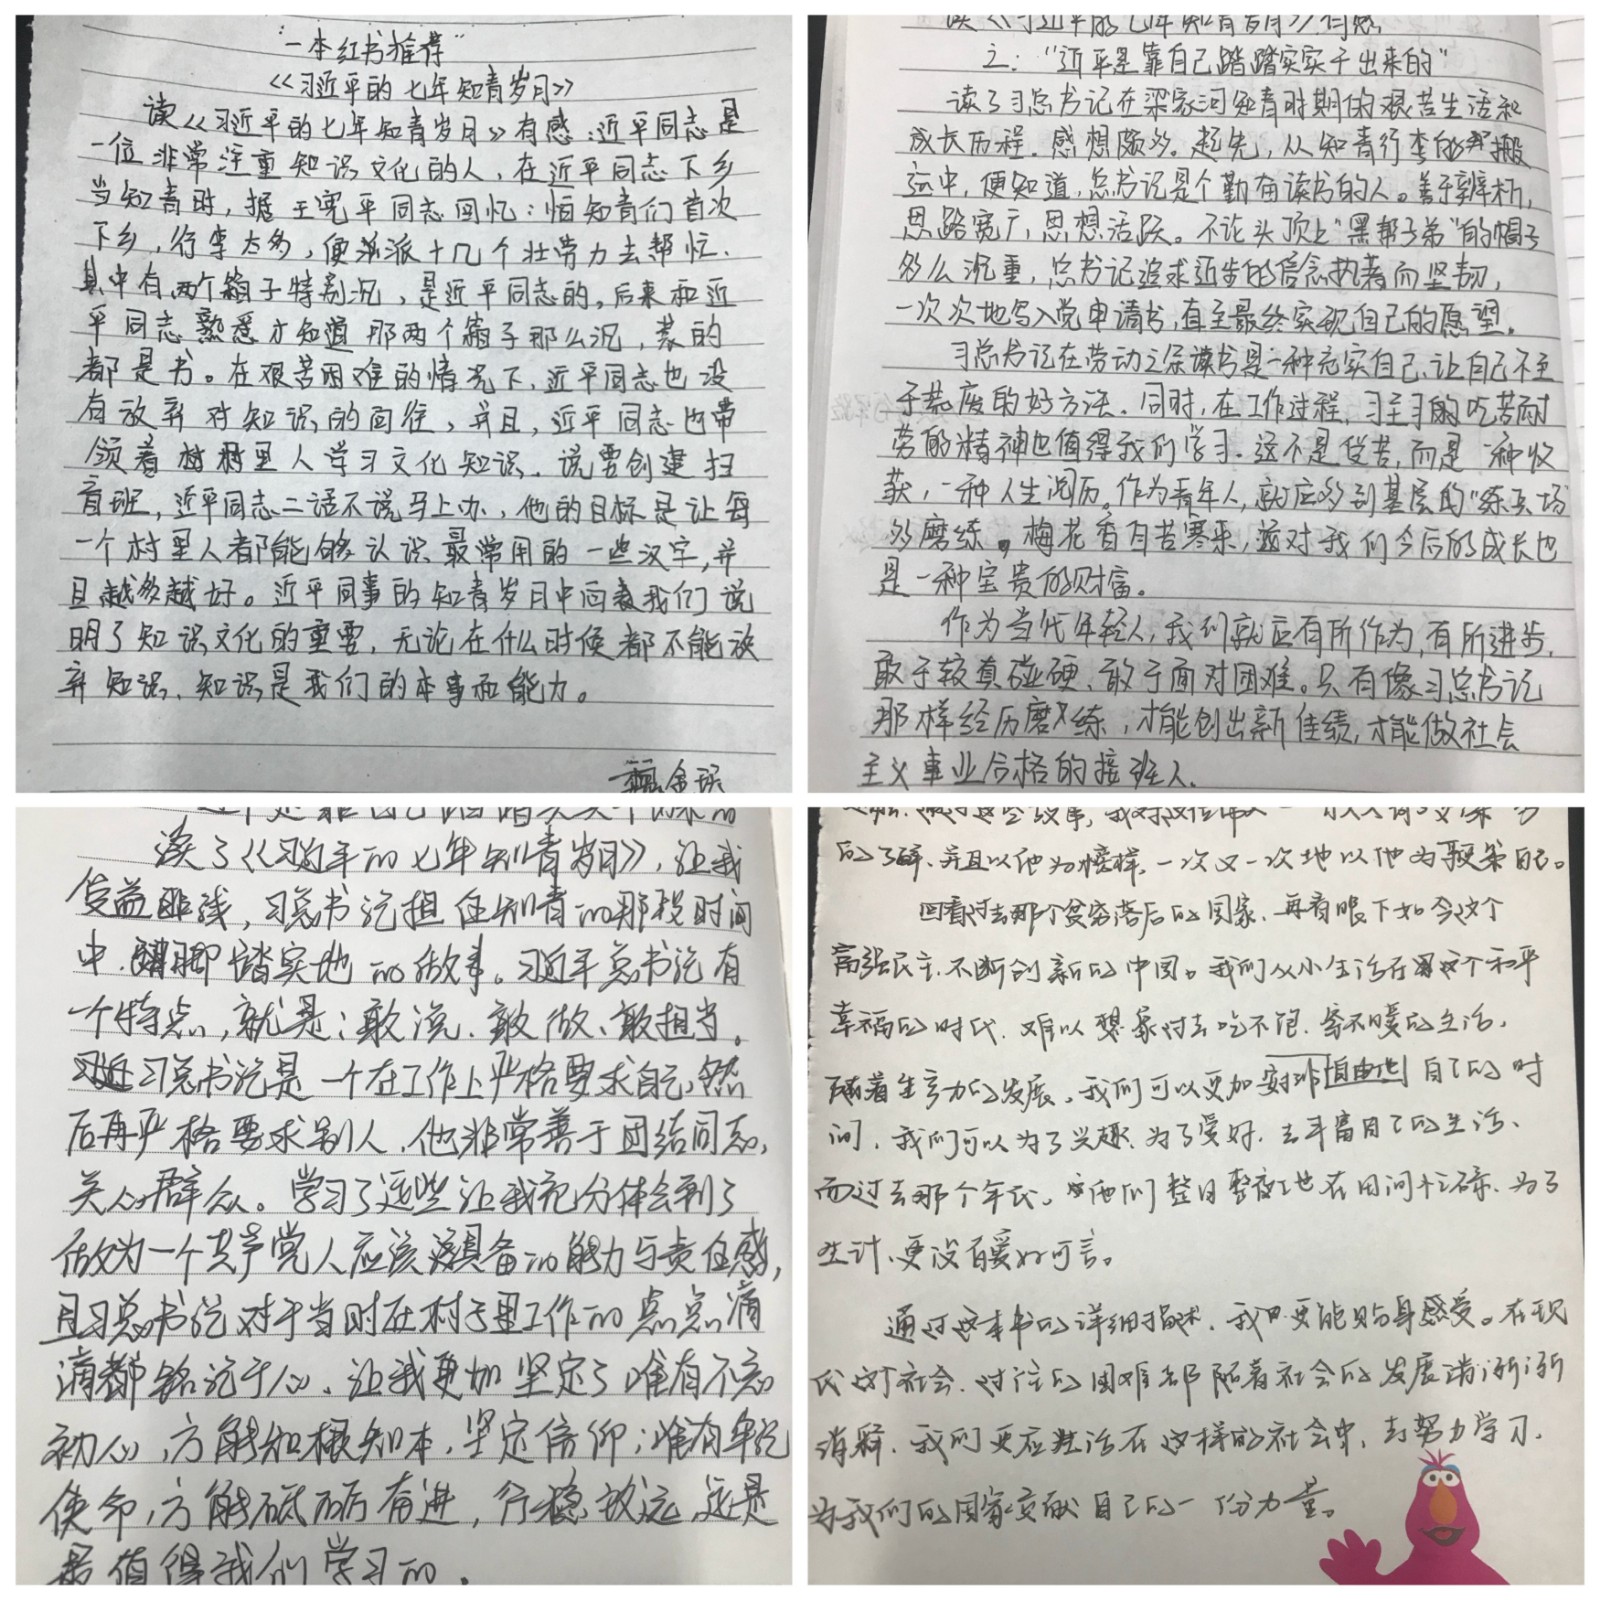 "一本红书推荐"
《习近平的七年知青岁月》
读《习近平的七年知青岁月》有感:近平同志是
一位非常注重知识文化的人,在近平同志下乡
当知青时,据王宪平同志回忆:怕知青们首次
下乡,行李太多,便派十几个壮劳力去帮忙.
其中有两个箱子特别沉,是近平同志的。后来和近
平同志熟悉才知道那两个箱子那么沉,装的
都是书。在艰苦困难的情况下,近平同志也没
有放弃对知识的向往,并且,近平同志也带
领着村里人学习文化知识.说要创建扫
盲班,近平同志二话不说马上办,他的目标是让每
一个村里人都能够认识最常用的一些汉字,并
且越多越好。近平同事的知青岁月中向我们说
明了知识文化的重要,无论在什么时候都不能放
弃知识、知识是我们的本事和能力。
读《习近平的七年知青岁月》有感
之:"近平是靠自己踏踏实实干出来的"
读了习总书记在梁家河知青时期的艰苦生活和
成长历程.感想颇多。起先,从知青行李的搬
运中,便知道,总书记是个勤奋读书的人。善于辨析,
思路宽广,思想活跃。不论头顶上"黑帮子弟"的帽子
多么沉重,总书记追求进步的信念执著而坚韧,
一次次地写入党申请书,直至最终实现自己的愿望。
习总书记在劳动之余读书是一种充实自己、让自己不至
于荒废的好方法.同时,在工作过程,习主习的吃苦耐
劳的精神也值得我们学习.这不是受苦,而是一种收
获,一种人生阅历。作为青年人,就应多到基层的"练兵场"
多磨练。梅花香自苦寒来,这对我们今后的成长也
是一种宝贵的财富。
作为当代年轻人,我们就应有所作为,有所进步,
敢于较真碰硬、敢于面对困难。只有像习总书记
那样经历磨练,才能创出新佳绩,才能做社会
主义事业合格的接班人.
读了《习近平的七年知青岁月》,让我
受益匪浅,习总书记担任知青的那段时间
中,脚踏实地的做事。习近平总书记有
一个特点,就是:敢说、敢做、敢担当。
习总书记是一个在工作上严格要求自己,然
后再严格要求别人,他非常善于团结同志,
关心群众。学习了这些让我充分体会到了
做为一个共产党人应该具备的能力与责任感,
且习总书记对于当时在村子里工作的点点滴
滴都铭记于心。让我更加坚定了唯有不忘
初心,方能知根知本,坚定信仰;唯有牢记
使命,方能砥砺奋进,行稳致远,这是
最值得我们学习的.
的了解.并且以他为榜样,一次又一次地以他为要求自己。
回看过去那个贫穷落后的国家.再看眼下如今这个
富强民主.不断创新的中国。我们从小生活在这个和平
幸福的时代.难以想象过去吃不饱.穿不暖的生活.
随着生产力的发展.我们可以更加自由地安排自己的时
间.我们可以为了兴趣.为了爱好.去丰富自己的生活.
而过去那个年代.他们整日整夜地在田间忙碌.为了
生计.更没有爱好可言。
通过这本书的详细描述.我更能贴身感受。在现
代这个社会.过往的困难都随着社会的发展渐渐
消释.我们更应生活在这样的社会中,去努力学习.
为我们的国家贡献自己的一份力量。